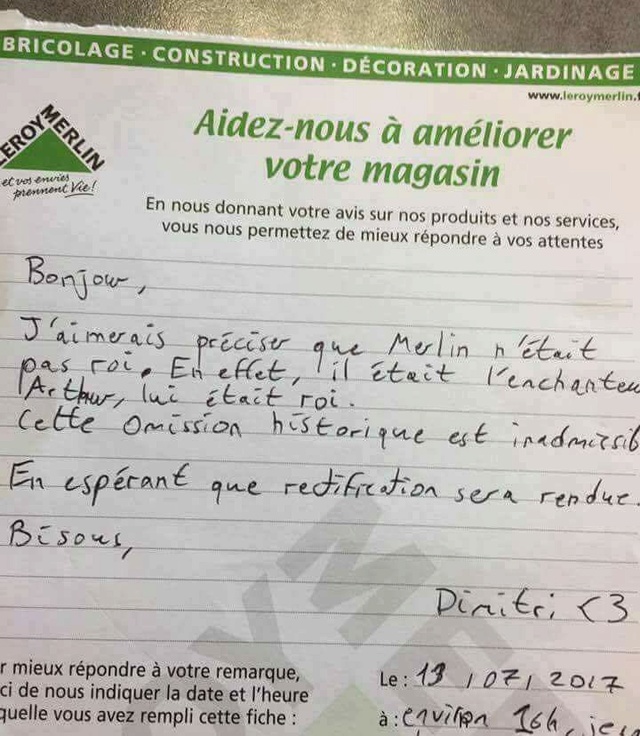 BRICOLAGE · CONSTRUCTION · DÉCORATION · JARDINAGE
www.leroymerlin.f
LEROY MERLIN
et vos envies
prennent Vie!
Aidez-nous à améliorer
votre magasin
En nous donnant votre avis sur nos produits et nos services,
vous nous permettez de mieux répondre à vos attentes
Bonjour,
J'aimerais préciser que Merlin n'était
pas roi. En effet, il était l'enchanteu
Arthur, lui était roi.
Cette omission historique est inadmissib
En espérant que rectification sera rendue.
Bisous,
Dimitri <3
r mieux répondre à votre remarque,
ci de nous indiquer la date et l'heure
quelle vous avez rempli cette fiche :
Le : 13 / 07 / 2017
à : environ 16h, jeu